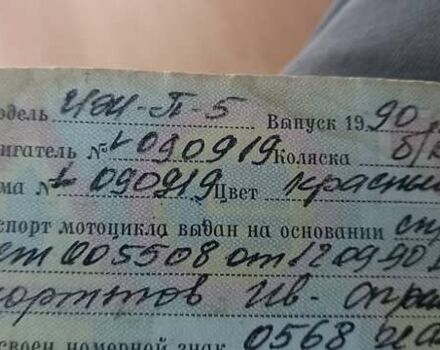 одель ИЖ-П-5 Выпуск 1990
вигатель № 090919 Коляска б/к
ма № 090919 Цвет красны
спорт мотоцикла выдан на основании сп
сет 005508 от 120990
Ив- спра
своен номерной знак 0568